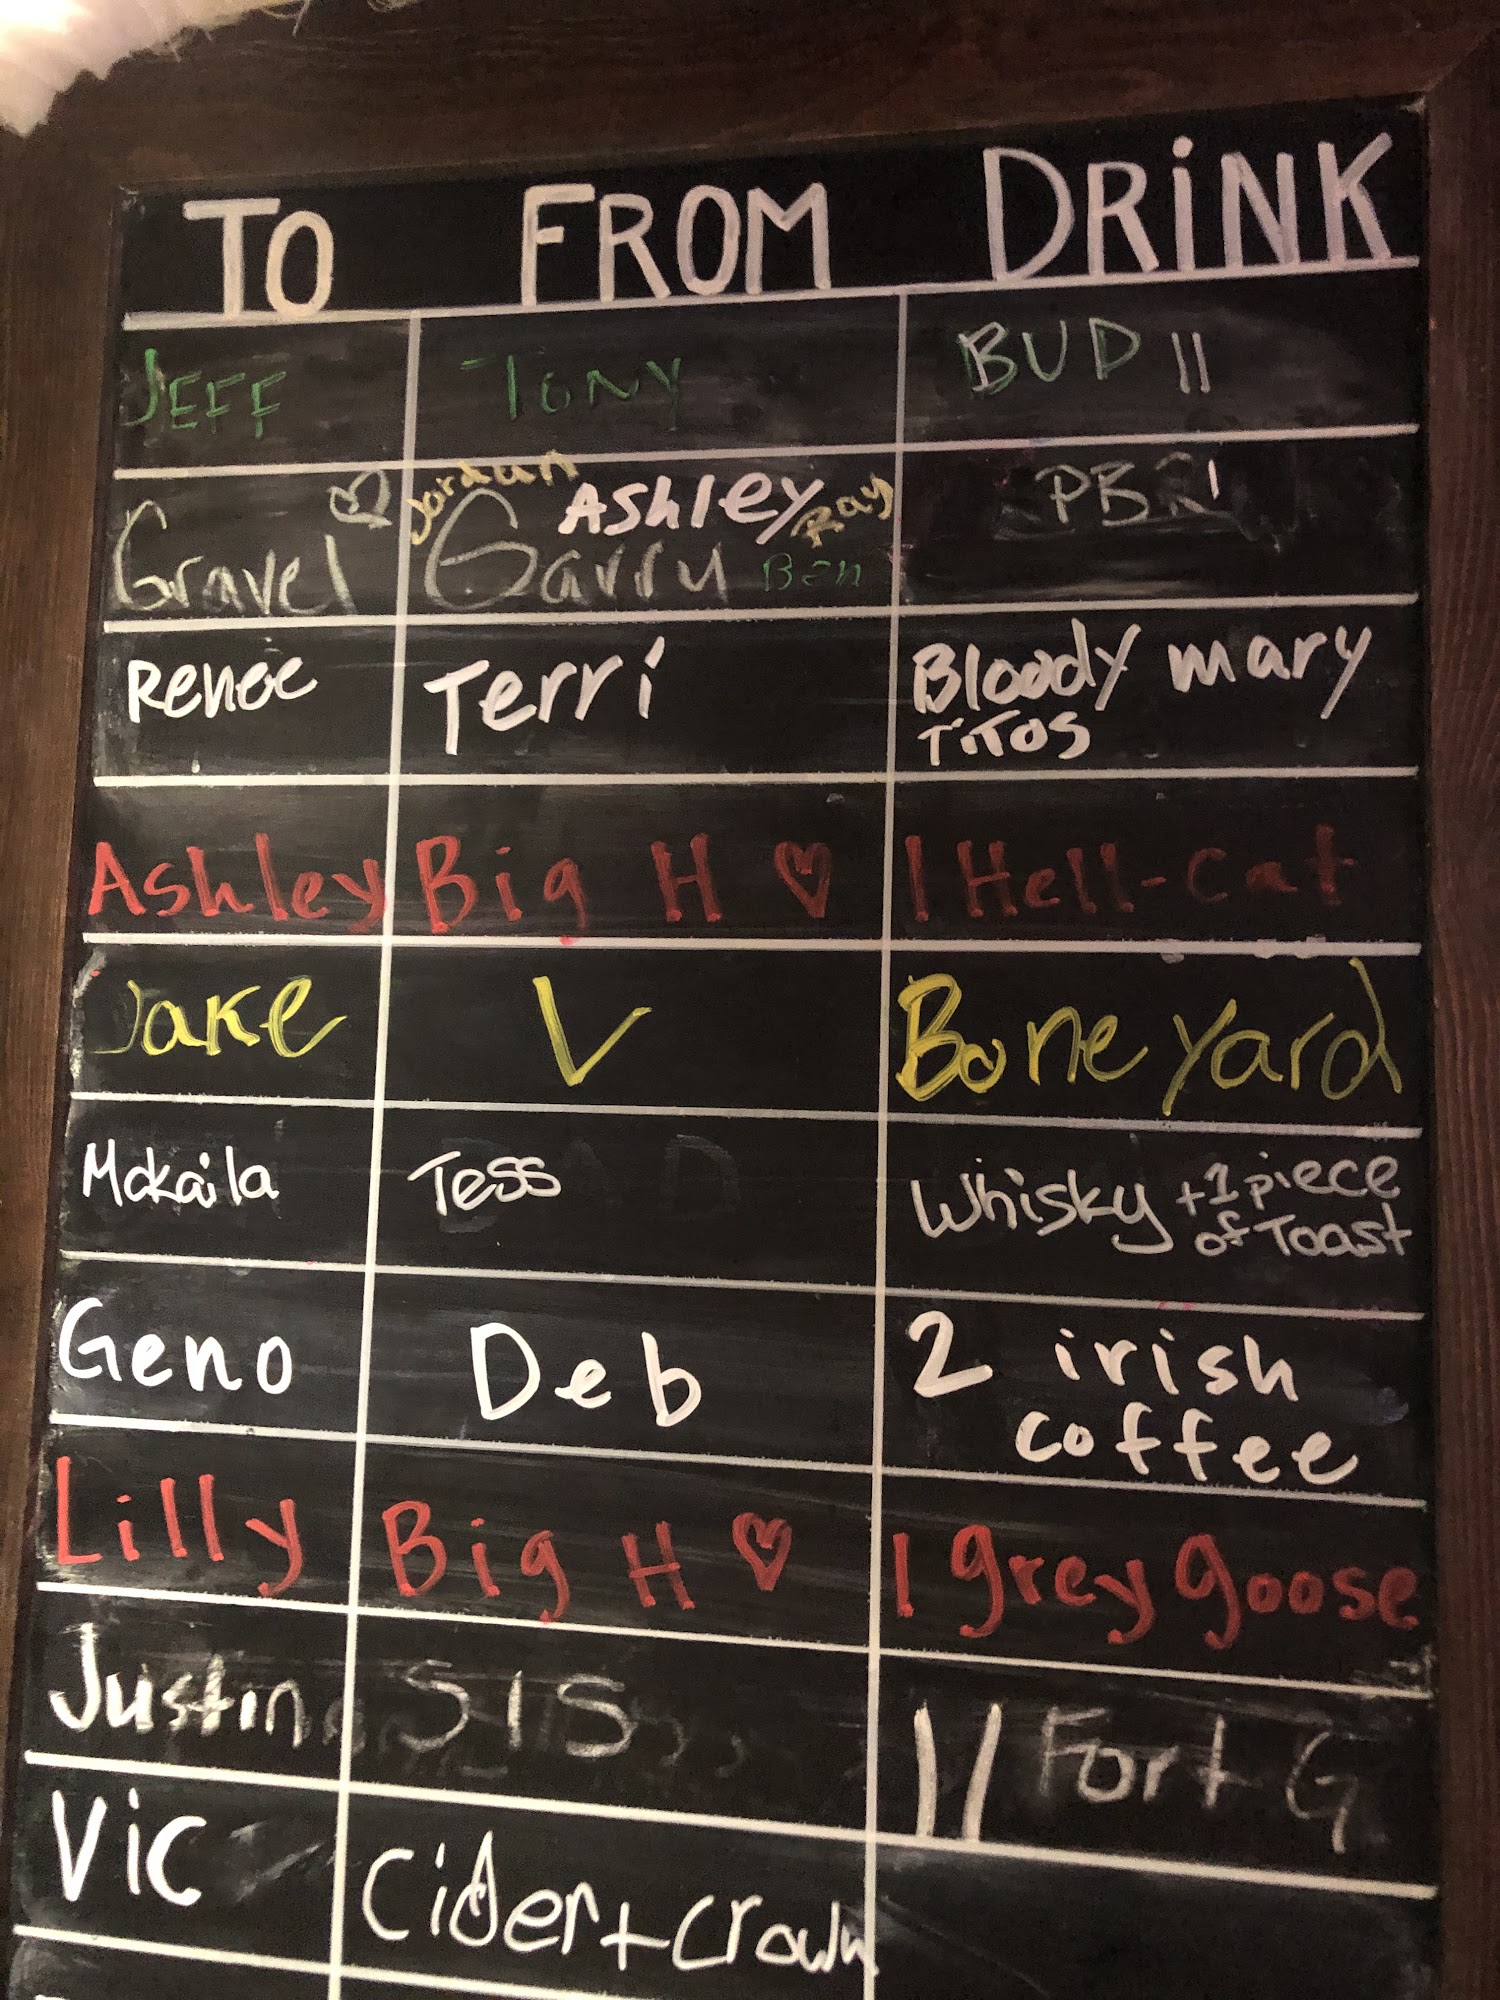 TO FROM DRiNK
JEFF Tony BUD ||
Gravel Jordan Ashley Ray Garry Ben PBR |
Renee Terri Bloody mary
TiTOS
Ashley Big H ♡ 1 Hell-cat
Jake V Bone Yard
Mckaila Tess Whisky +1 piece
of Toast
Geno Deb 2 irish
coffee
Lilly Big H ♡ 1 grey goose
Justin SIS || Fort G
Vic Cider + Crown